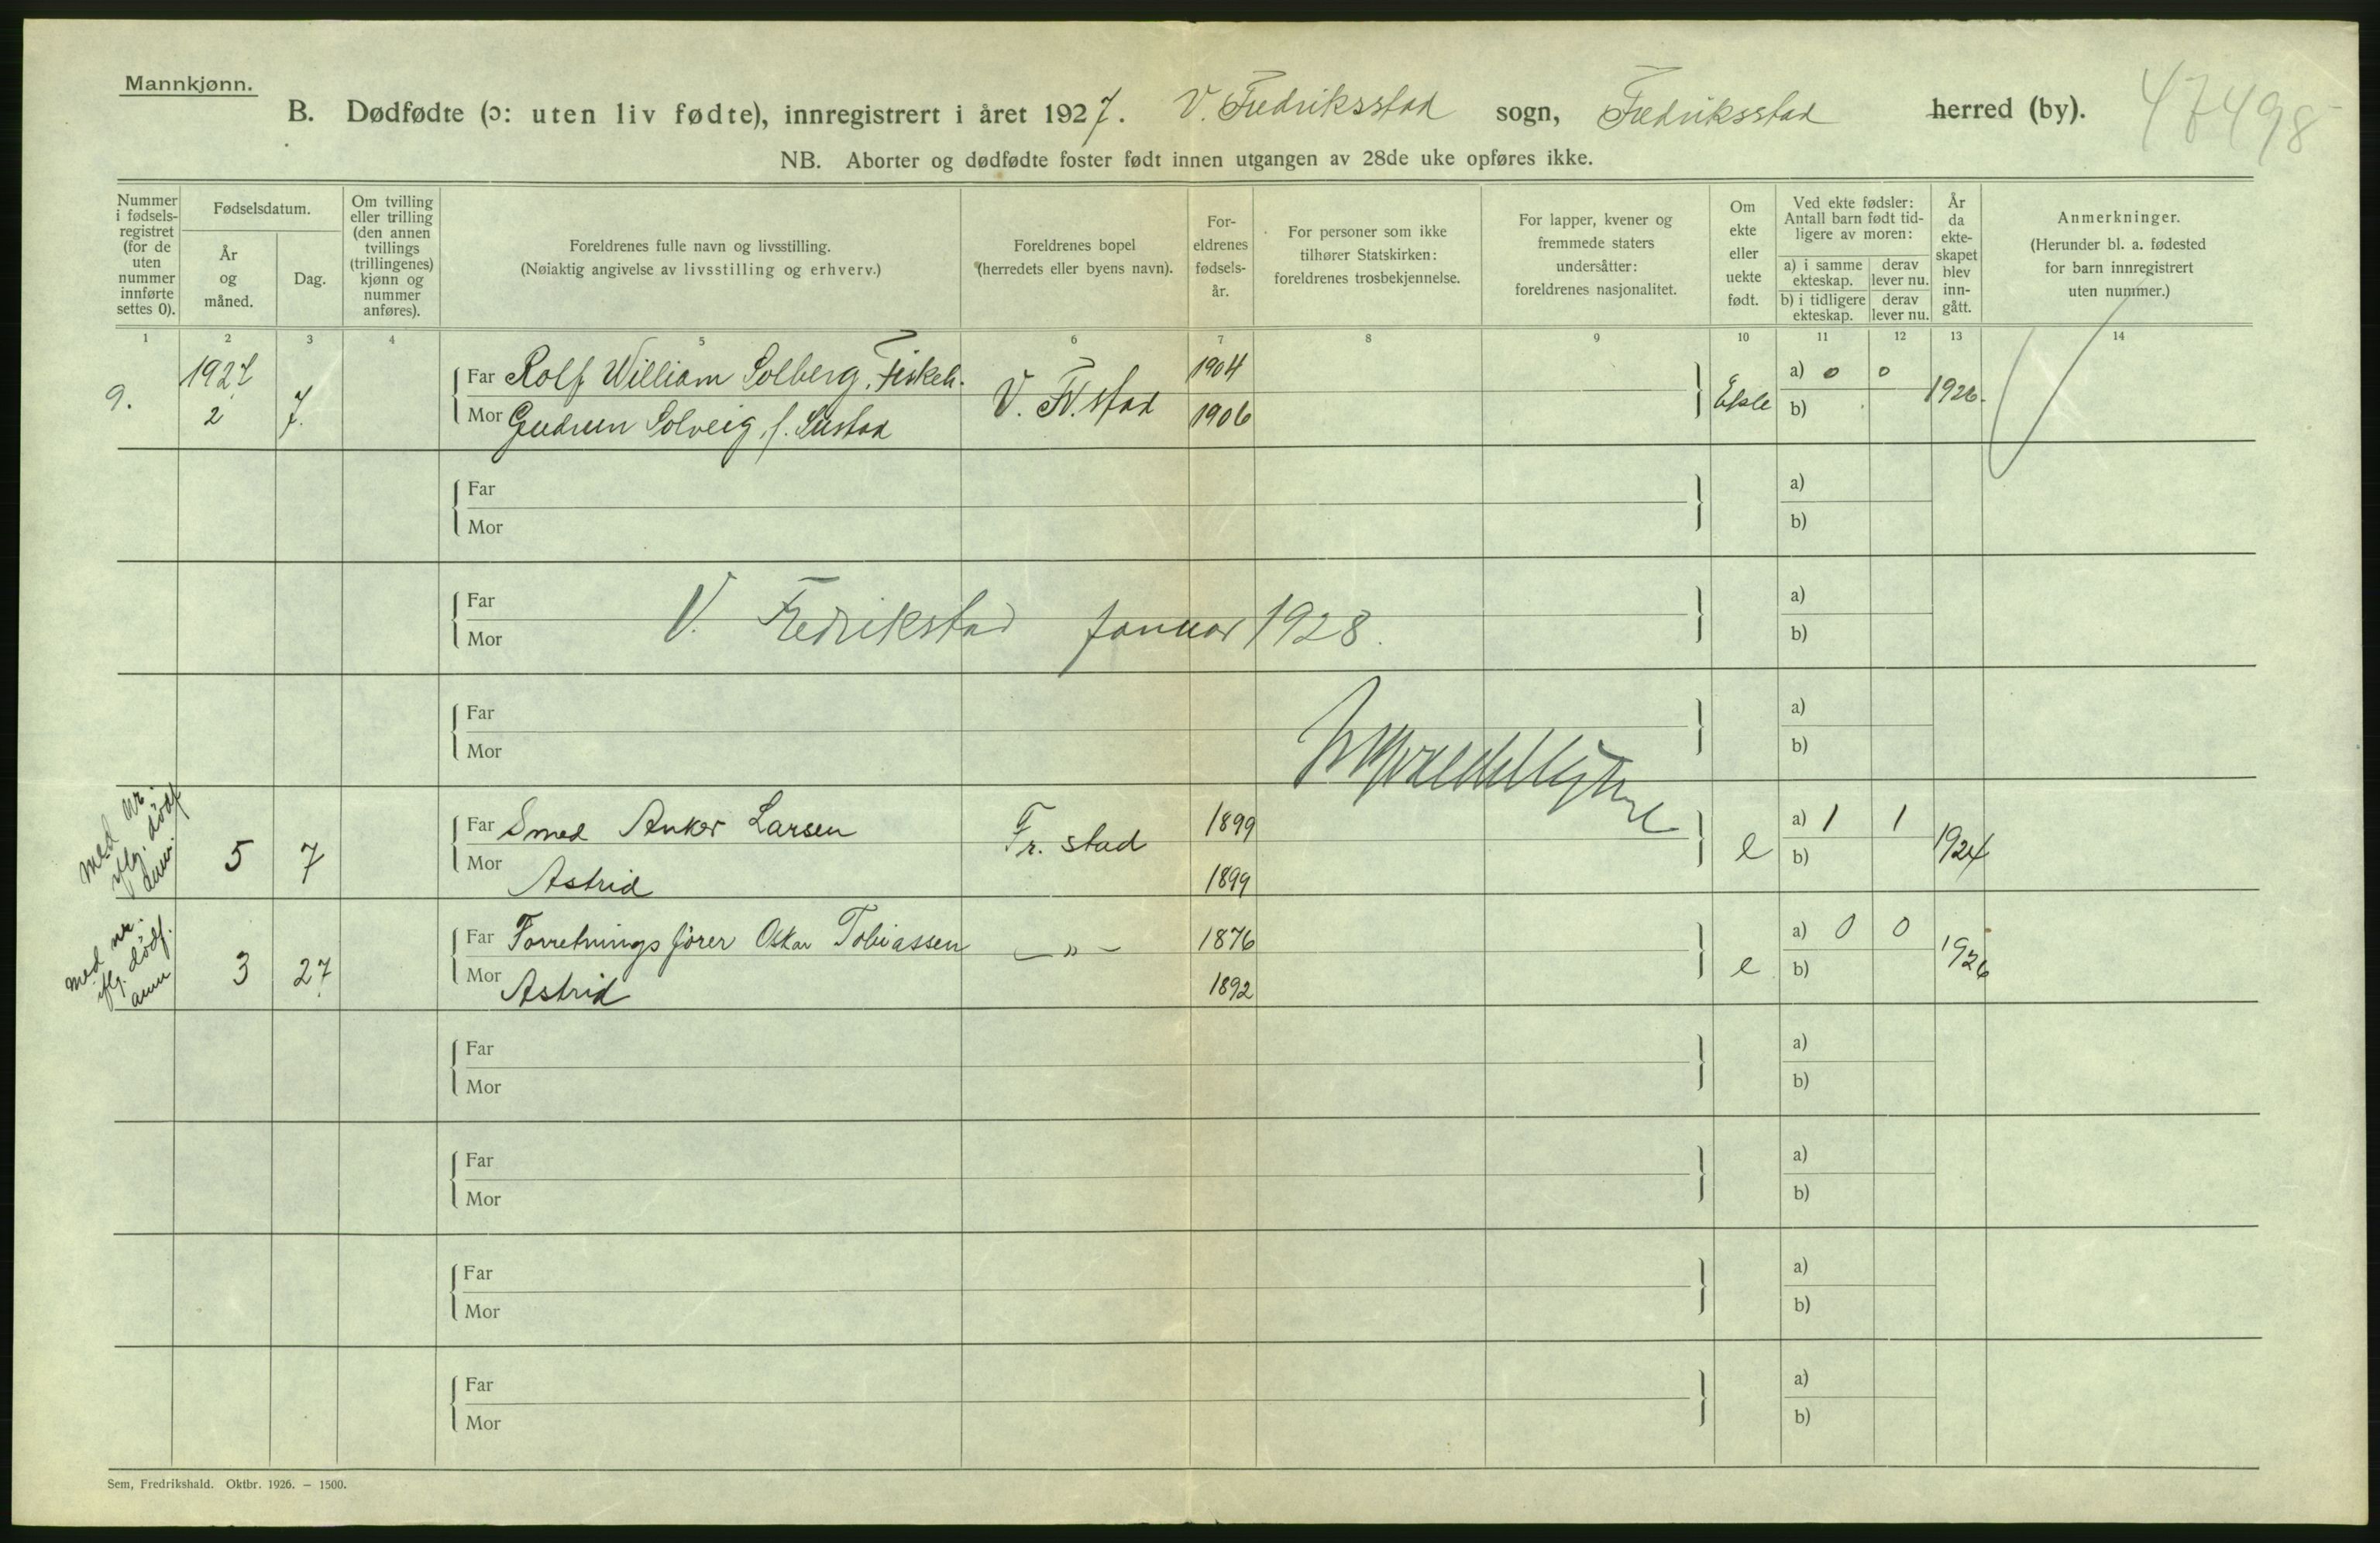 Mannkjønn.
B. Dødfødte (ɔ: uten liv fødte), innregistrert i året 1927. V. Fredriksstad sogn, Fredriksstad herred (by). 47498
NB. Aborter og dødfødte foster født innen utgangen av 28de uke opføres ikke.
Nummer
i fødsels-
registret
(for de
uten
nummer
innførte
settes 0).
Fødselsdatum.
År
og
måned.
Dag.
Om tvilling
eller trilling
(den annen
tvillings
(trillingenes)
kjønn og
nummer
anføres).
Foreldrenes fulle navn og livsstilling.
(Nøiaktig angivelse av livsstilling og erhverv.)
Foreldrenes bopel
(herredets eller byens navn).
For-
eldrenes
fødsels-
år.
For personer som ikke
tilhører Statskirken:
foreldrenes trosbekjennelse.
For lapper, kvener og
fremmede staters
undersåtter:
foreldrenes nasjonalitet.
Om
ekte
eller
uekte
født.
Ved ekte fødsler:
Antall barn født tid-
ligere av moren:
a) i samme
ekteskap.
derav
lever nu.
b) i tidligere
ekteskap.
derav
lever nu.
År
da
ekte-
skapet
blev
inn-
gått.
Anmerkninger.
(Herunder bl. a. fødested
for barn innregistrert
uten nummer.)
1 2 3 4 5 6 7 8 9 10 11 12 13 14
1927 Far Rolf William Solberg, Fiskeh. 1904 a) 0 0
9. 2 7. V. Fr.stad Ekte 1926.
Mor Gudrun Solveig, f. 1906 b)
Far a)
Mor b)
Far a)
V. Fredrikstad Januar 1928.
Mor b)
Far a)
Mor b)
med nr.
iflg. dødf.
anm.
Far Smed Anker Larsen 1899 a) 1 1
5 7 Fr. stad e 1924
Mor Astrid 1899 b)
med nr.
iflg. dødf.
anm
Far Forretningsfører Oskar Tobiassen — " — 1876 a) 0 0
3 27 e 1926
Mor Astrid 1892 b)
Far a)
Mor b)
Far a)
Mor b)
Far a)
Mor b)
Far a)
Mor b)
Sem, Fredrikshald. Oktbr. 1926. – 1500.